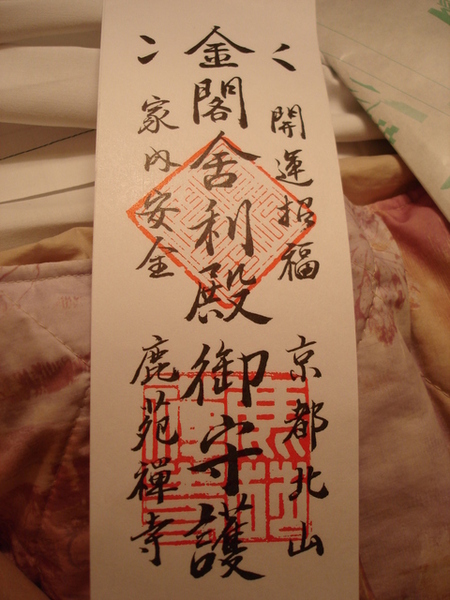 開運招福 京都北山
金閣舍利殿御守護
家内安全 鹿苑禪寺